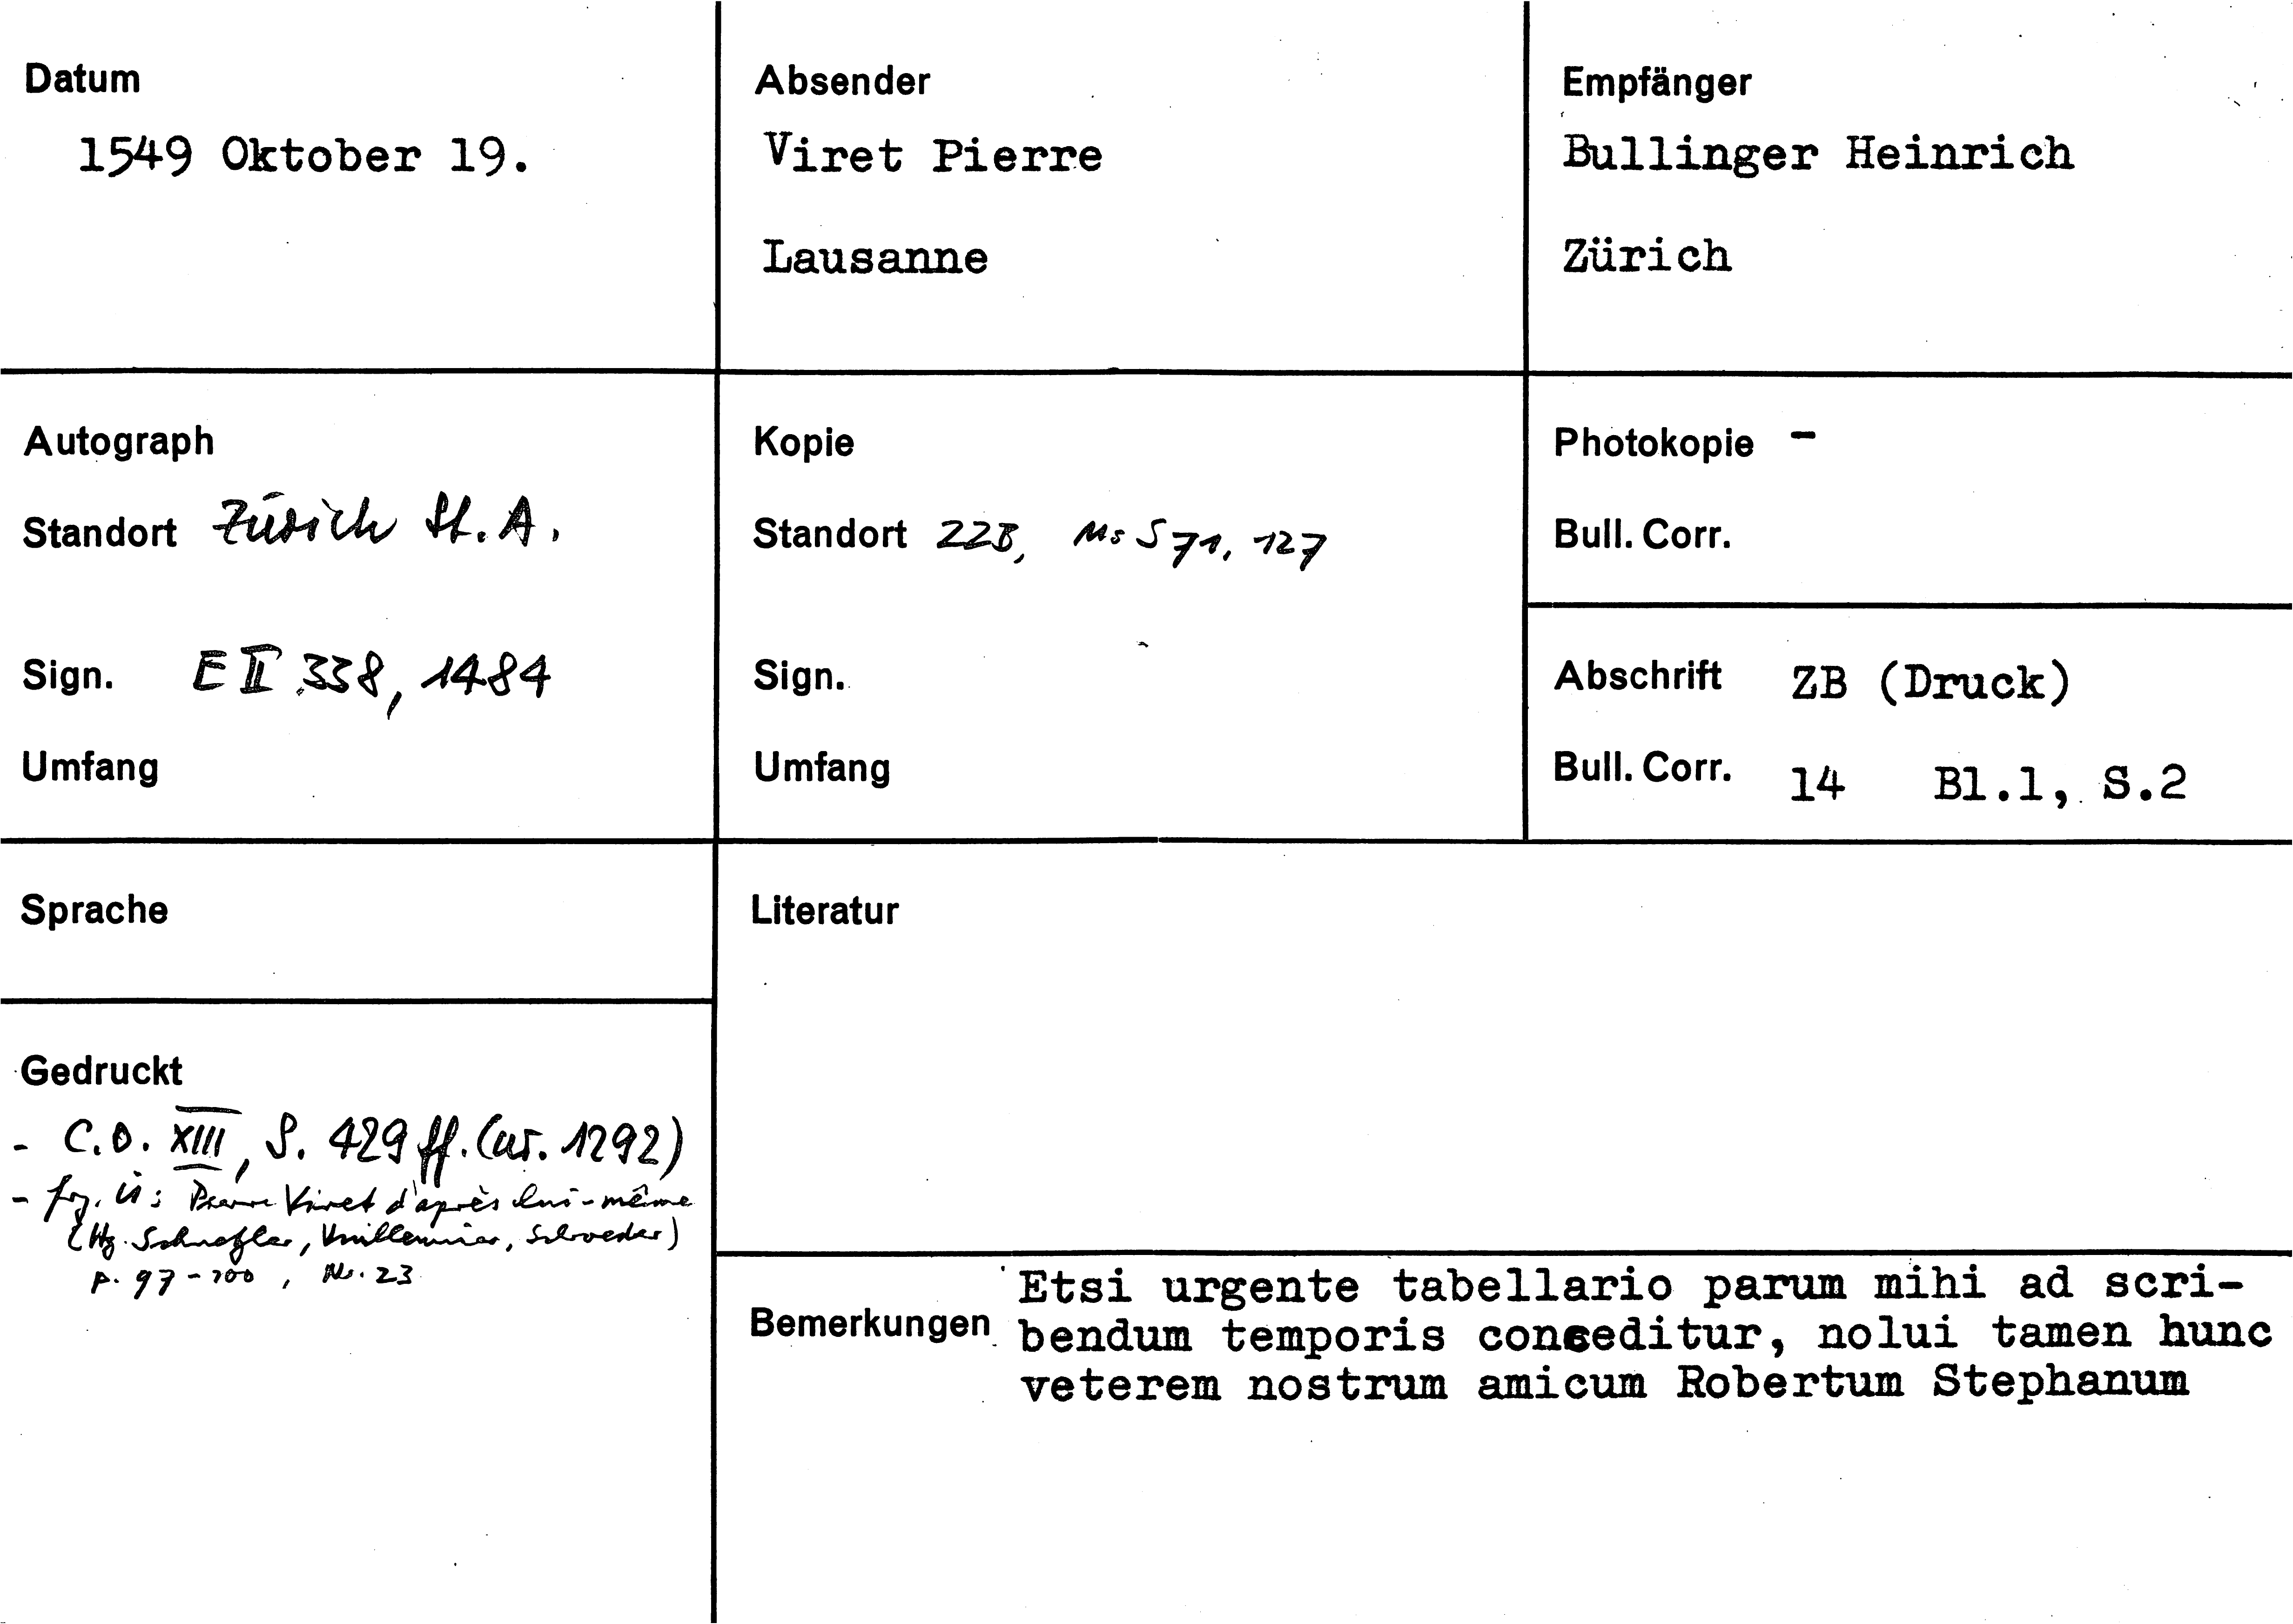 Datum
1549 Oktober 19.
Absender
Viret Pierre
Lausanne
Empfänger
Bullinger Heinrich
Zürich
Autograph
Standort Zürich St. A.
Sign. E II 338, 1484
Umfang
Kopie
Standort ZZB, Ms S 71, 127
Sign.
Umfang
Photokopie -
Bull. Corr.
Abschrift ZB (Druck)
Bull. Corr. 14 Bl.1, S.2
Sprache
Literatur
Gedruckt
- C.O. XIII, S. 429 ff. (nr. 1292)
- frg. in: Pierre Viret d'après lui-même
(Hg. Schnetzler, Vuilleumier, Schroeder)
p. 97-100, Nr. 23
Bemerkungen
Etsi urgente tabellario parum mihi ad scri-
bendum temporis conceditur, nolui tamen hunc
veterem nostrum amicum Robertum Stephanum